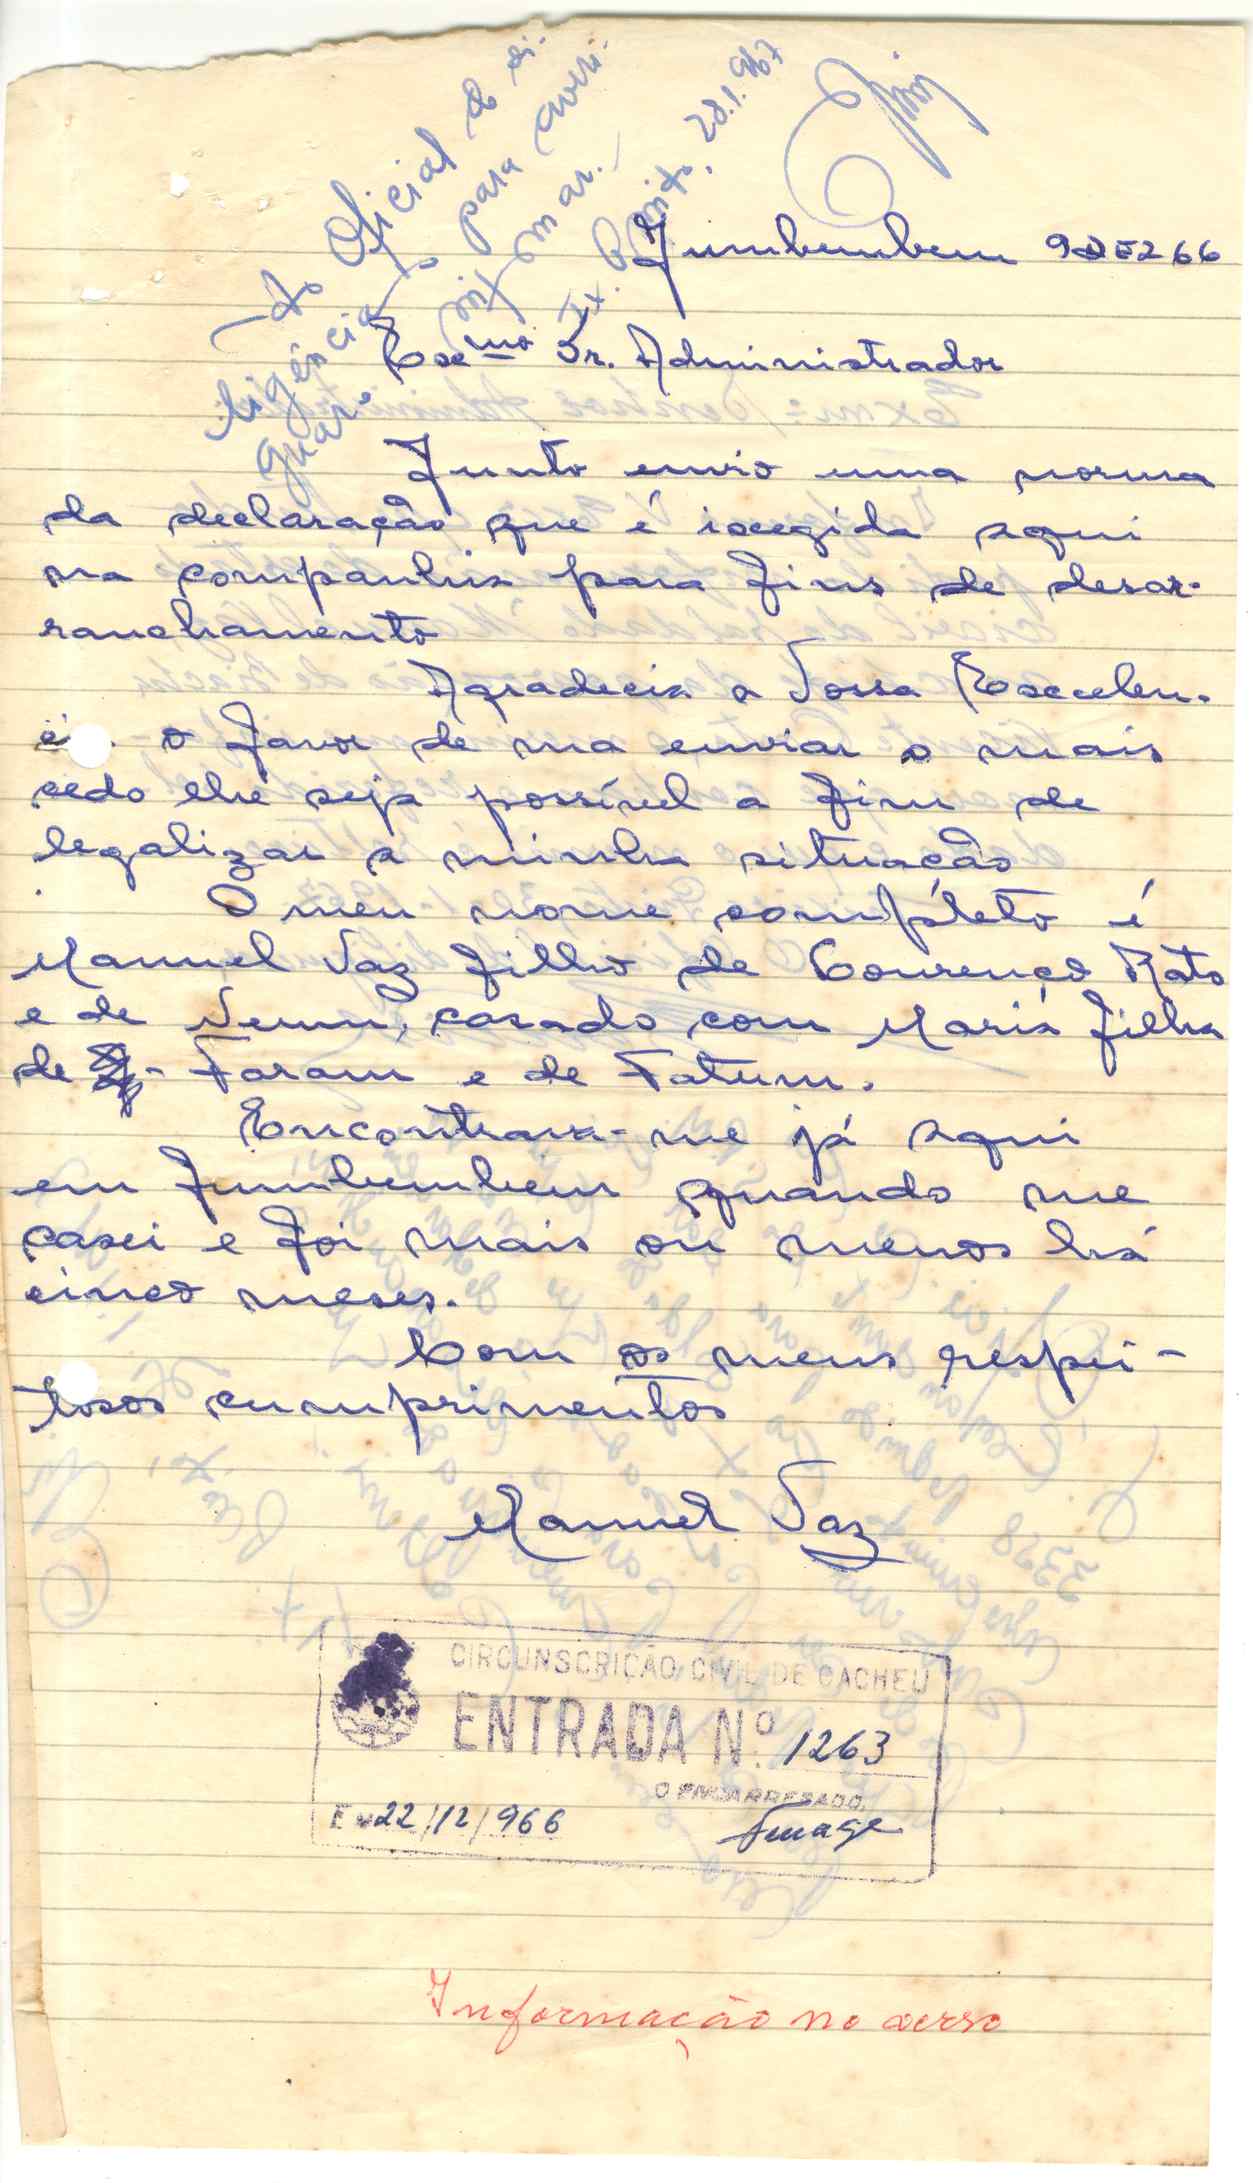 Ao Oficial de di-
ligências para averi-
guar.
28.1.967
Jumbembem 9DEZ66
Exc.mo Sr. Administrador
Junto envio uma norma
da declaração que é ixegida aqui
na companhia para fins de desar-
ranchamento
Agradecia a Vossa Excelen-
o favor de ma enviar o mais
cedo lhe seja possível a fim de
legalizar a minha situação
O meu nome compléto é
Manuel Vaz filho de Lourenço Mato
e de casado com Maria filha
de Faram e de Fatum.
Encontrava-me já aqui
em Jumbembem quando me
casei e foi mais ou menos há
cinco meses.
Com os meus respei-
tosos cumprimentos
Manuel Vaz
CIRCUNSCRIÇÃO CIVIL DE CACHEU
ENTRADA N.º 1263
O ENCARREGADO,
Em 22/12/966
Informação no verso